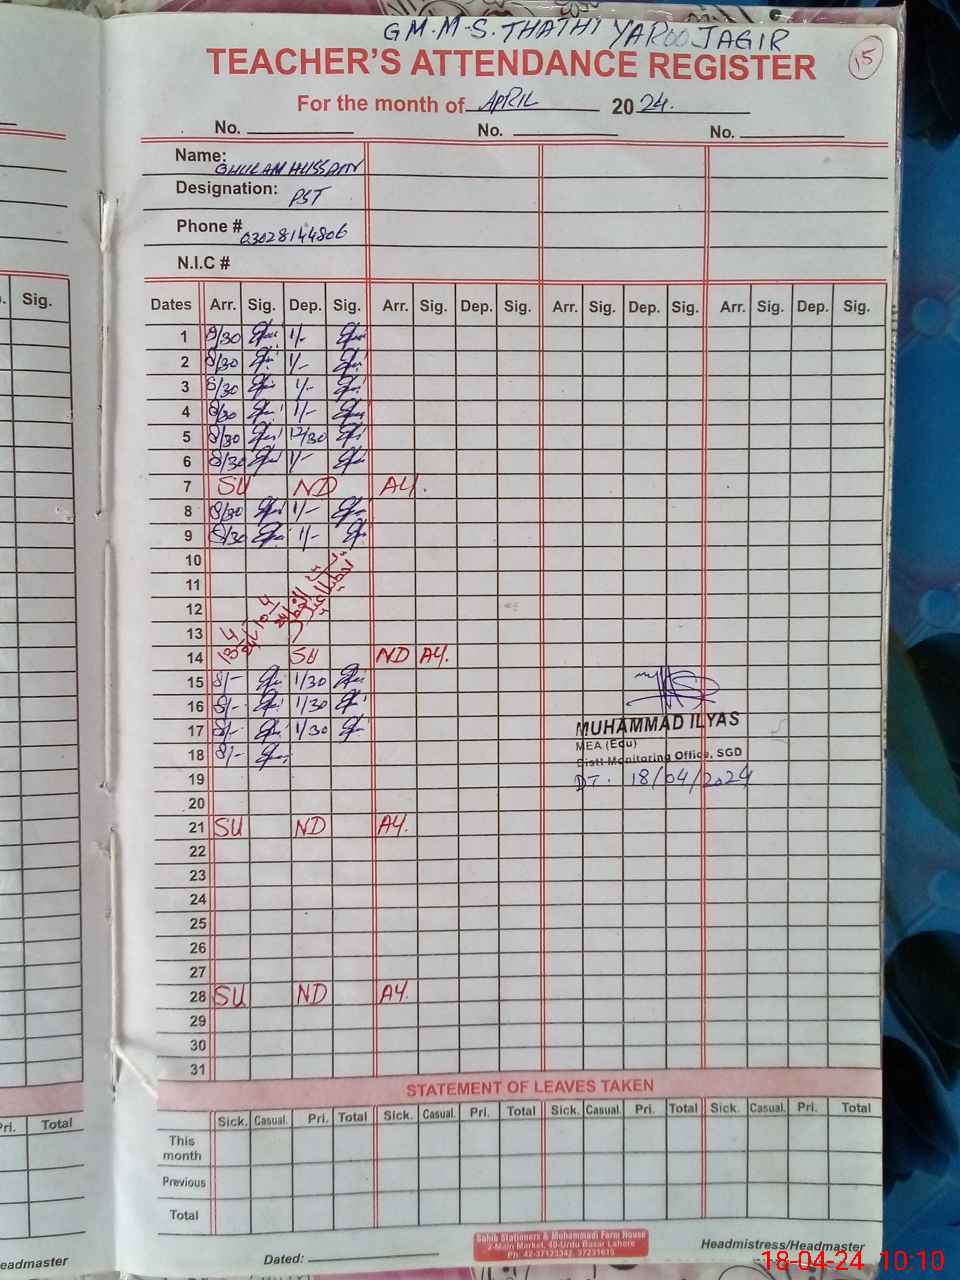 GM.M.S. THATHI YAROO JAGIR
TEACHER'S ATTENDANCE REGISTER
15
For the month of APRIL 2024.
No. No. No.
Name: GHULAM HUSSAIN
Designation: PST
Phone # 03028144806
N.I.C #
Sig.
Dates Arr. Sig. Dep. Sig. Arr. Sig. Dep. Sig. Arr. Sig. Dep. Sig. Arr. Sig. Dep. Sig.
1 8/30 1/-
2 8/30 1/-
3 8/30 1/-
4 8/30 1/-
5 8/30 12/30
6 8/30 1/-
7 SU ND AY.
8 8/30 1/-
9 8/30 1/-
10
11
12
13
14 SU ND AY.
15 8/- 1/30
16 8/- 1/30
17 8/- 1/30
18 8/-
MUHAMMAD ILYAS
MEA (Edu)
Distt Monitoring Office, SGD
DT. 18/04/2024
19
20
21 SU ND AY.
22
23
24
25
26
27
28 SU ND AY.
29
30
31
STATEMENT OF LEAVES TAKEN
Pri. Total
Sick. Casual. Pri. Total Sick. Casual. Pri. Total Sick. Casual. Pri. Total Sick. Casual. Pri. Total
This
month
Previous
Total
eadmaster
Dated:
Sahib Stationers & Muhammadi Form House
2-Main Market, 40-Urdu Bazar Lahore
Ph: 42-37123342, 37231615
Headmistress/Headmaster
18-04-24 10:10